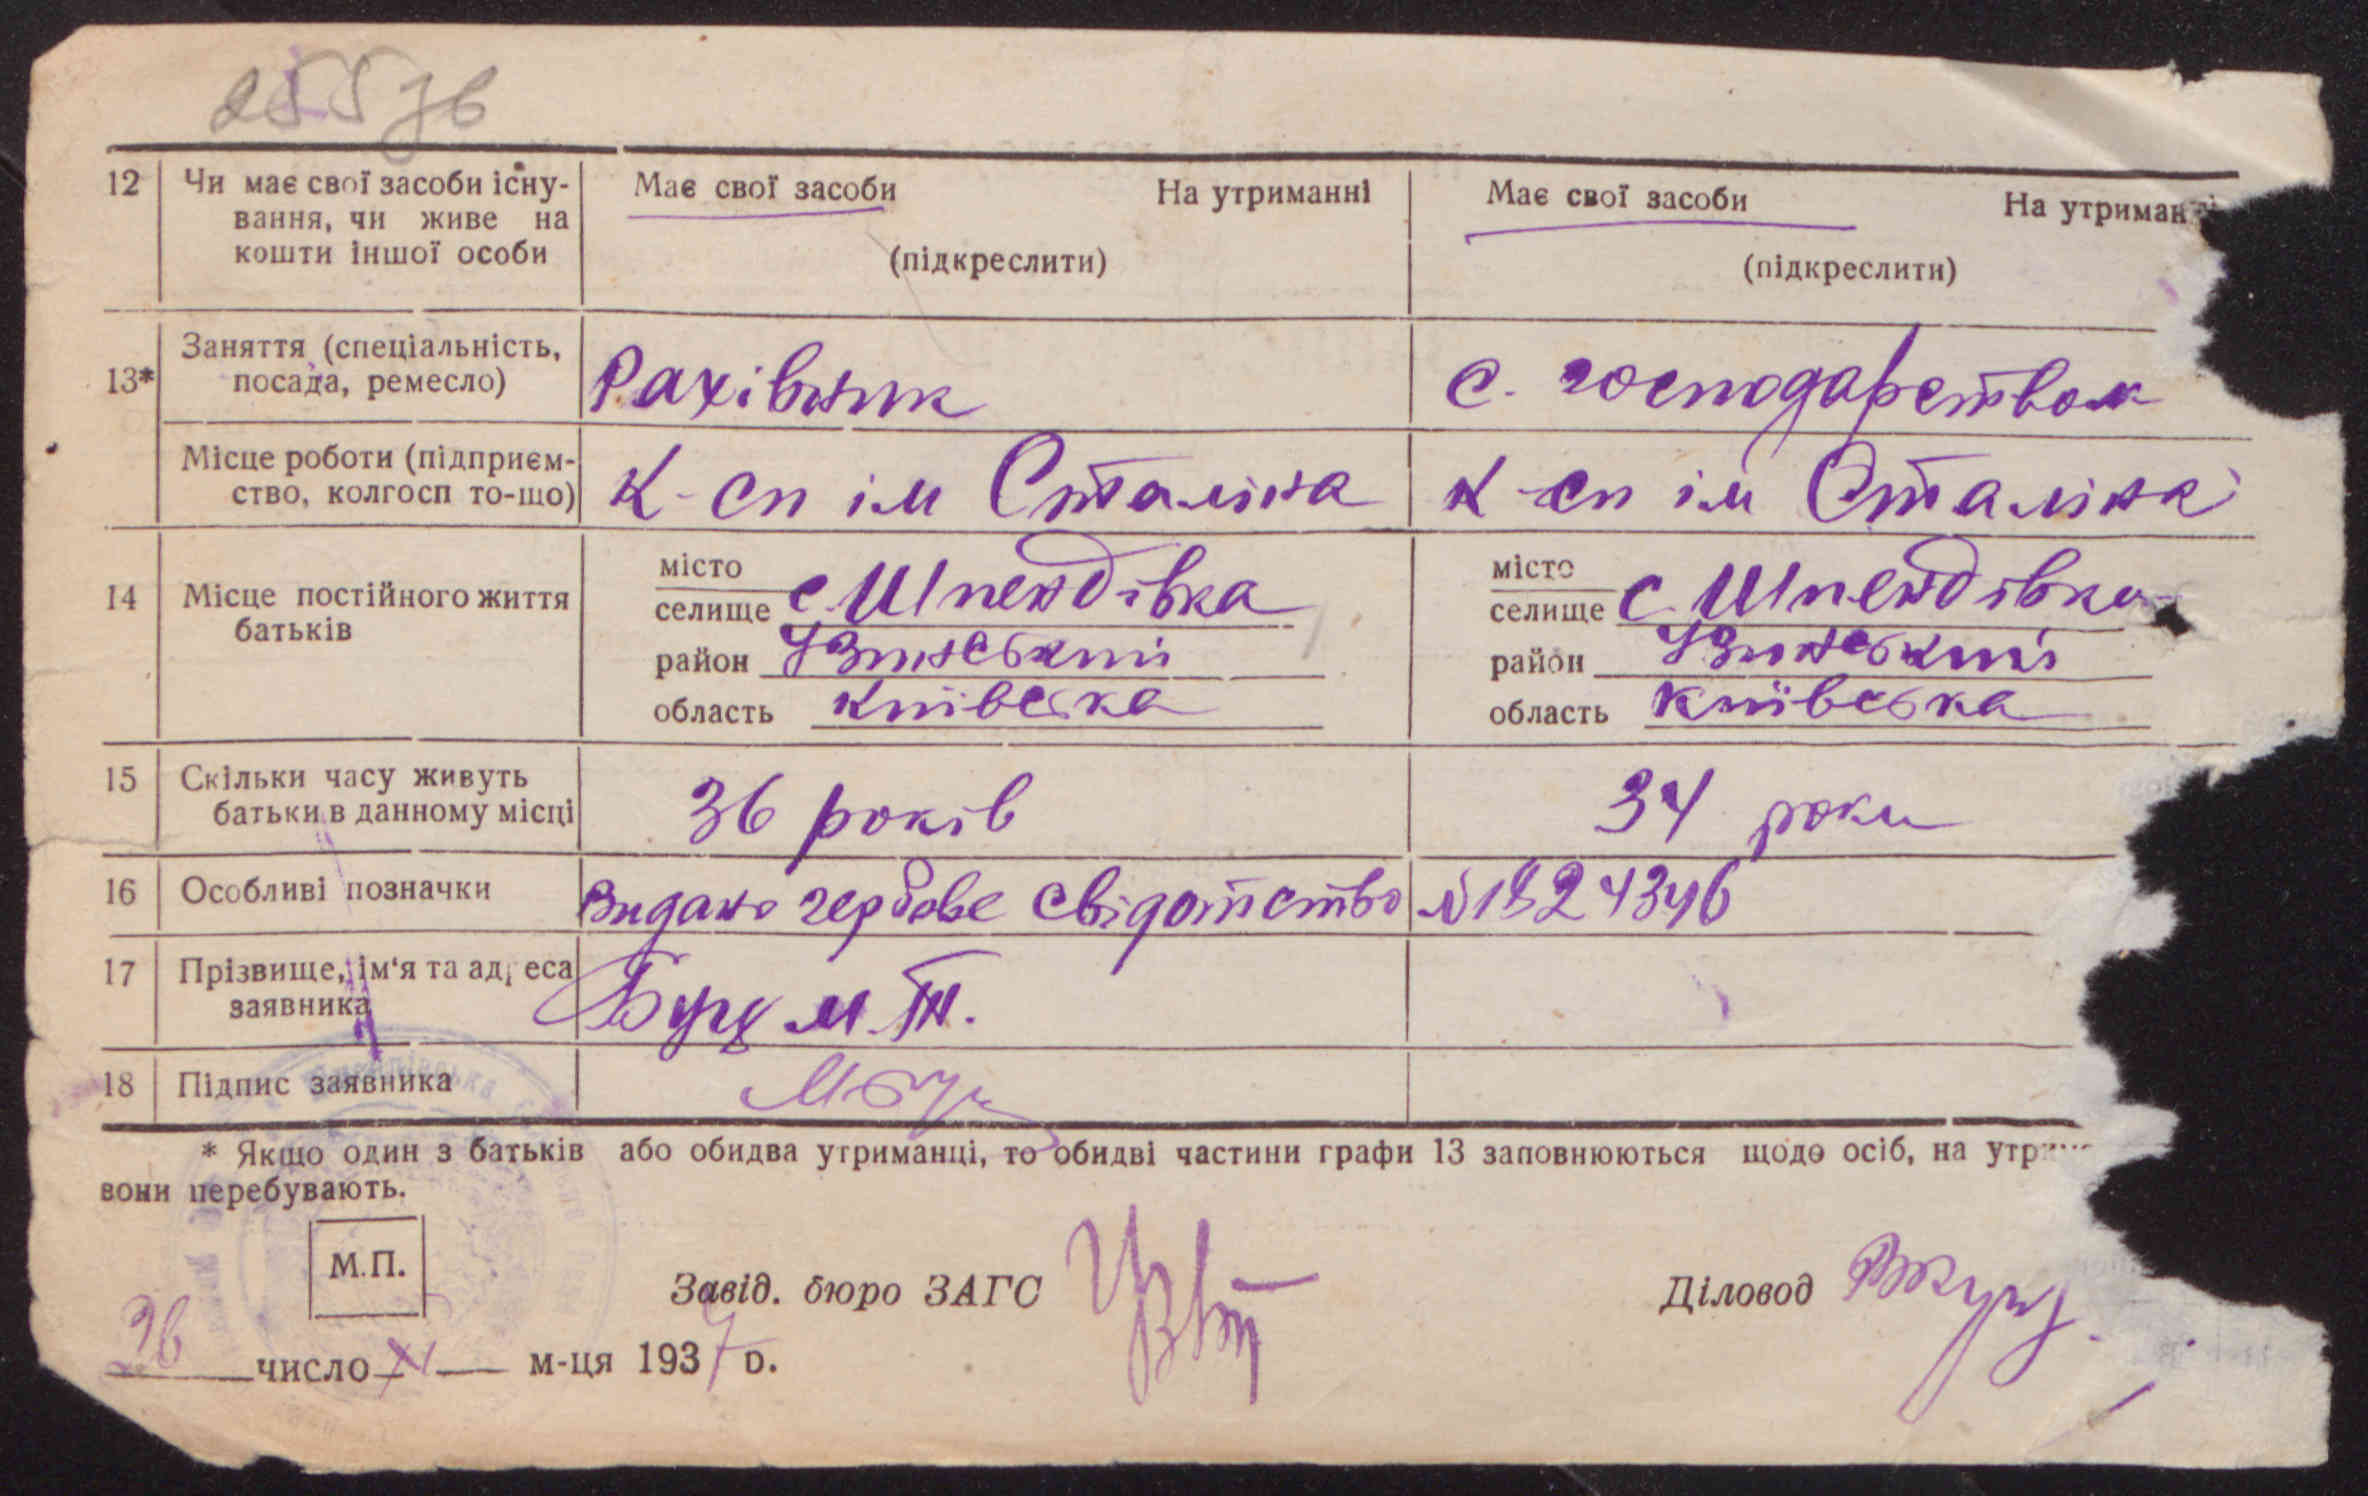 25576
12 Чи має свої засоби існу- Має свої засоби На утриманні Має свої засоби На утриман
вання, чи живе на
кошти іншої особи (підкреслити) (підкреслити)
13* Заняття (спеціальність,
посада, ремесло) Рахівник с. господарством
Місце роботи (підприєм-
ство, колгосп то-що) К-сп ім Сталіна К-сп ім Сталіна
14 Місце постійного життя батьків місто місто
селище с. Шпендівка селище с. Шпендівка
район Узинський район Узинський
область Київська область Київська
15 Скільки часу живуть
батьки в данному місці 36 років 34 роки
16 Особливі позначки Видано гербове свідотство №1824346
17 Прізвище, ім'я та адреса
заявника Буц М. Т.
18 Підпис заявника МБуц
* Якщо один з батьків або обидва утриманці, то обидві частини графи 13 заповнюються щодо осіб, на утри
вони перебувають.
М.П.
Завід. бюро ЗАГС Діловод
26 число XI м-ця 1937 р.